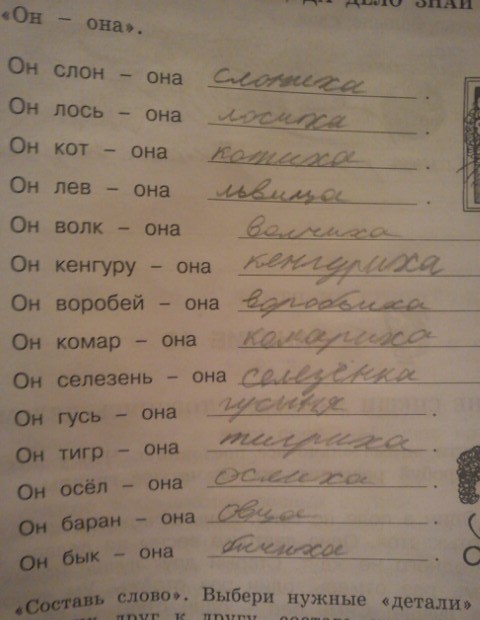 ДА ДЕЛО ЗНАЙ
«Он – она».
Он слон – она слониха.
Он лось – она лосиха.
Он кот – она котиха.
Он лев – она львица.
Он волк – она волчиха
Он кенгуру – она кенгуриха
Он воробей – она воробьиха
Он комар – она комариха
Он селезень – она селезёнка
Он гусь – она гусыня.
Он тигр – она тигриха.
Он осёл – она ослиха.
Он баран – она овца.
Он бык – она бычиха.
«Составь слово». Выбери нужные «детали»
друг к другу,